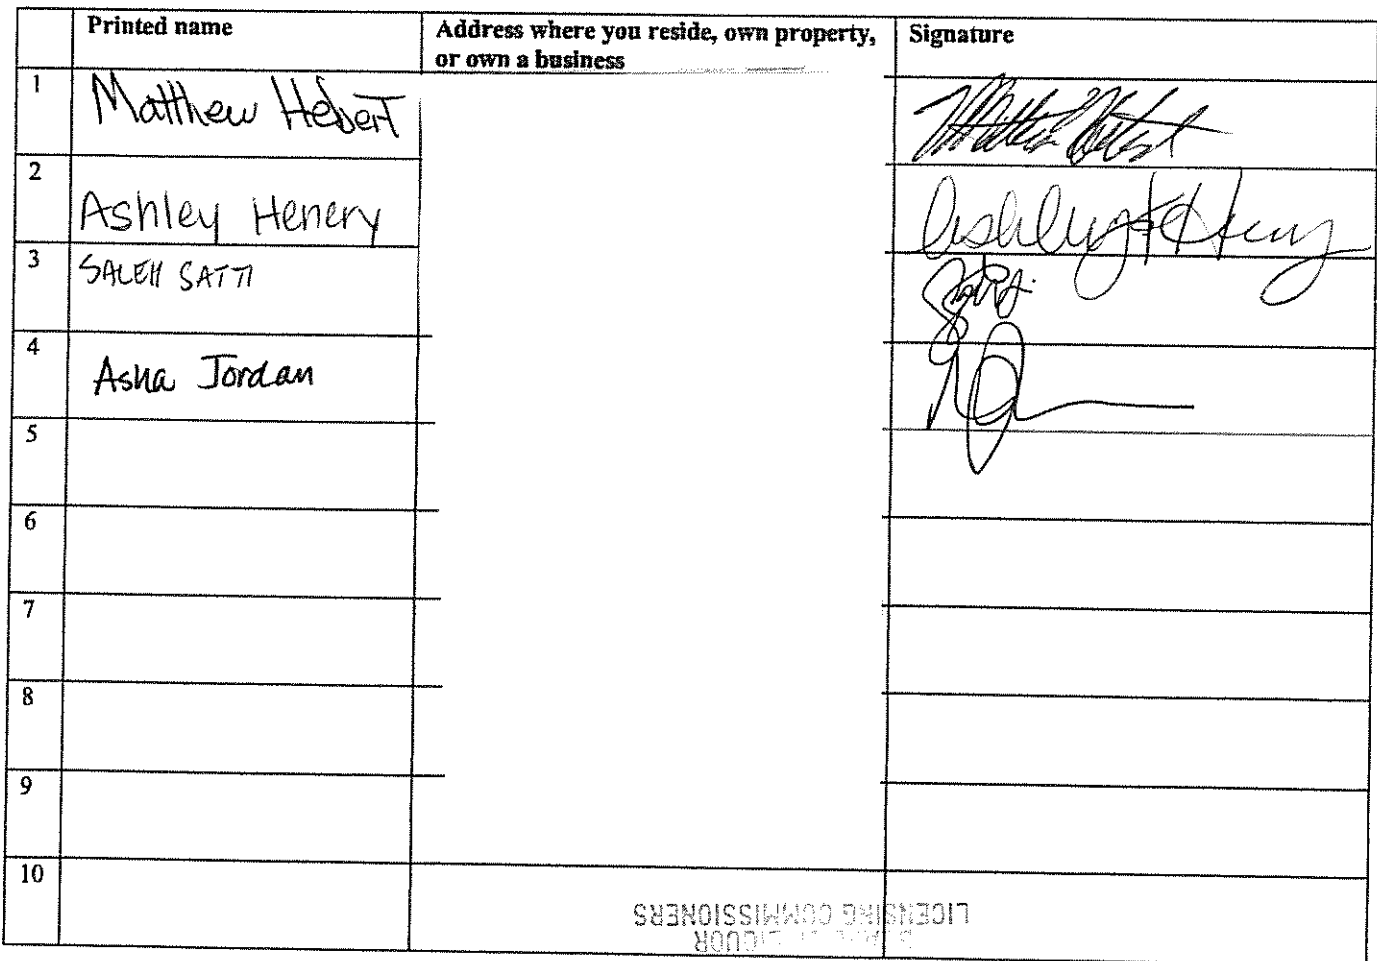 Printed name
Address where you reside, own property,
or own a business
Signature
1
Matthew Hebert
2
Ashley Henery
3
SALEH SATTI
4
Asha Jordan
5
6
7
8
9
10
LICENSING COMMISSIONERS
LIQUOR